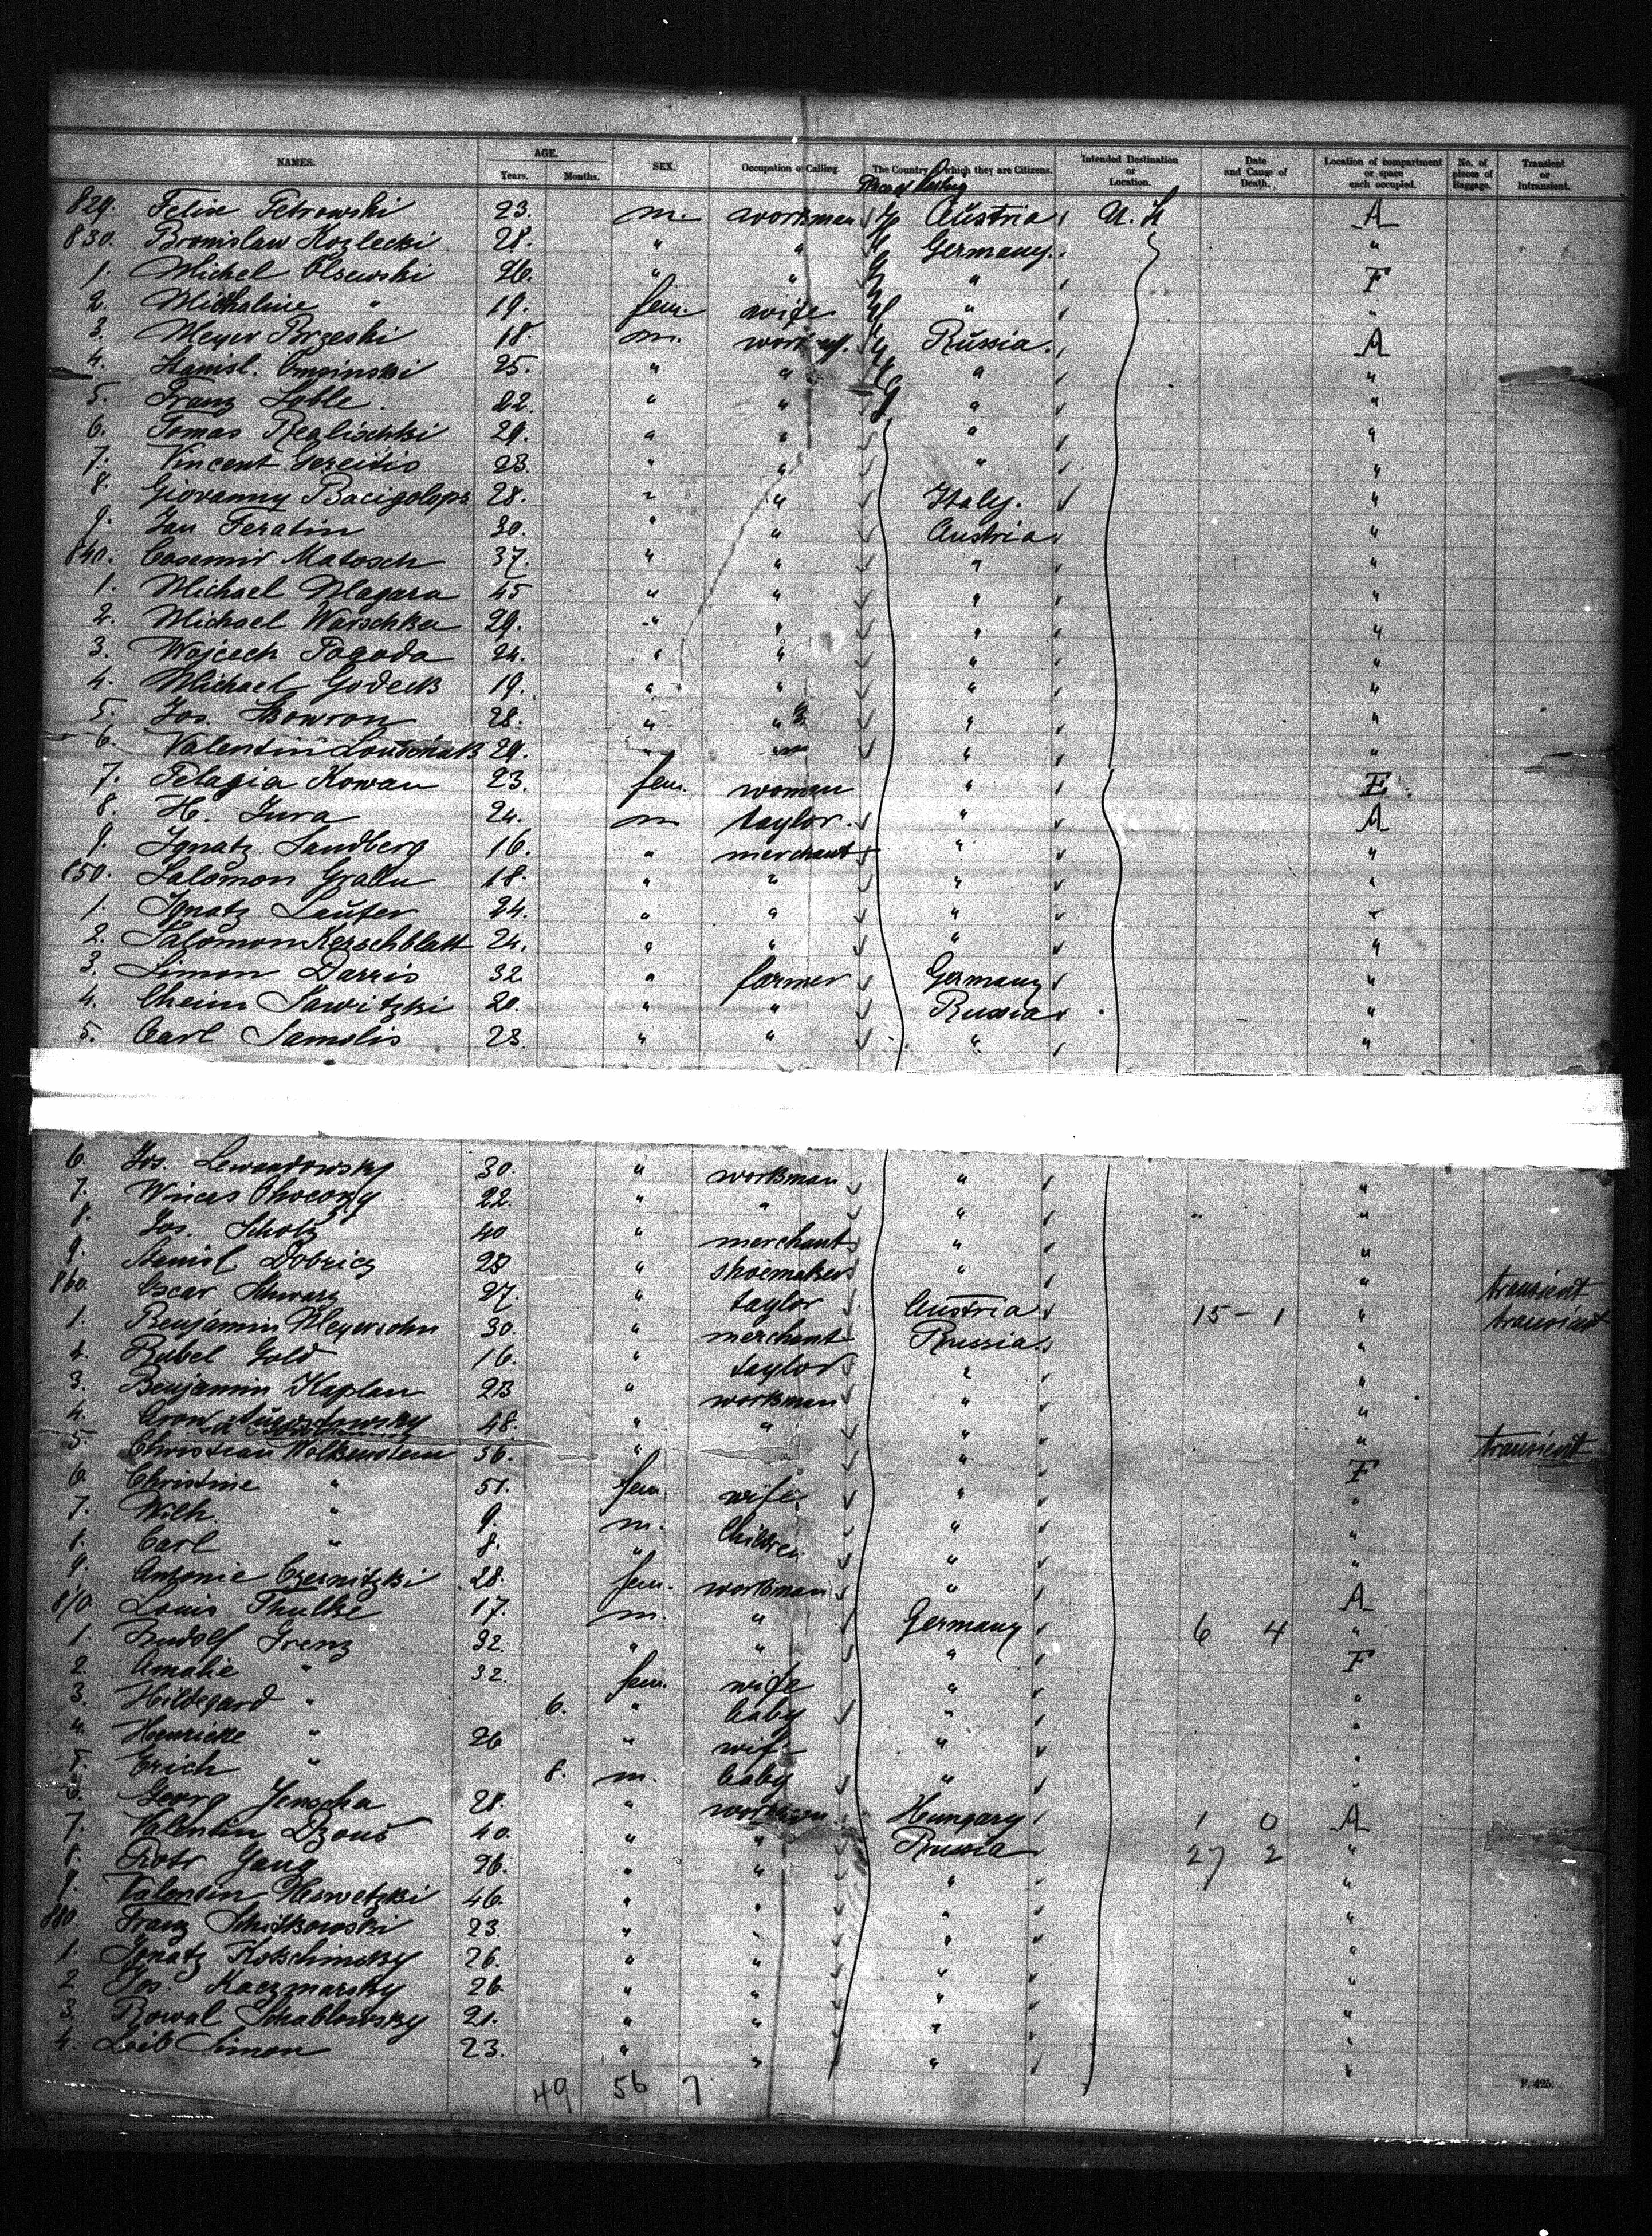 NAMES. AGE. Years. Months. SEX. Occupation or Calling. The Country of which they are Citizens. Intended Destination or Location. Date and Cause of Death. Location of compartment or space each occupied. No. of pieces of Baggage. Transient or Intransient.
829. Felix Petrowski 23. m. workman Austria A
830. Bronislaw Kozlecki 28. " " Germany. "
1. Michel Olsewski 26. " " " F
2. Michaline " 19. fem. wife " "
3. Meyer Brzeski 18. m. Russia. A
4. Stanisl. 25. " " " "
5. Franz Loble 22. " " " "
6. Tomas 29. " " " "
7. Vincent 23. " " " "
8. Giovanny 28. " " Italy. "
9. Jan Feratin 30. " " Austria "
840. Casemir Matosch 37. " " " "
1. Michael Magara 45 " " " "
2. Michael Warschka 29. " " " "
3. Wojcech Pogoda 24. " " " "
4. Michael Godeck 19. " " " "
5. Jos. 28. " " " "
6. Valentin 29. " " " "
7. Pelagia Kowan 23. fem. woman " E
8. H. Jura 24. m taylor. " A
9. Ignatz Sandberg 16. " merchant " "
850. Salomon 18. " " " "
1. Ignatz Laufer 24. " " " "
2. Salomon Kerschblatt 24. " " " "
3. Simon Darris 32 " farmer Germany "
4. Cheim Sawitzki 20. " " Russia "
5. Carl Samolis 23. " " " "
6. Jos. Lewandowsky 30. " workman " "
7. Winces 22. " " " "
8. Jos. Scholz 40 " merchant " "
9. Stanisl Dobricz 28 " shoemaker " "
860. Oscar Schwarz 27. " taylor Austria 15-1 " transient
1. Benjamin Meyersohn 30. " merchant Russia " transient
2. Rubel Gold 16. " taylor " "
3. Benjamin Kaplan 23 " workman " "
4. Aron 48. " " " "
5. Christian Wolkenstein 56. " " F transient
6. Christine " 51. fem. wife " "
7. Wilh. " 9. m. Children " "
8. Carl " 8. " " "
9. Antonie Czernitzki 28. fem. workman " A
870 Louis Thulke 17. m. " Germany 6 4 "
1. Rudolf Grenz 32. " " " F
2. Amalie " 32. fem. wife " "
3. Hildegard " 6. " baby " "
4. Henriette " 26 " wife " "
5. Erich " 8. m. baby " "
6. Georg Jenscha 28. " workman Hungary 1 0 A
7. Valentin 40. " " Russia 27 2 "
8. Piotr Gang 26. " " " "
9. Valentin 46. " " " "
880. Franz Schitkowski 23. " " " "
1. Ignatz Kotschinsky 26. " " " "
2. Jos. Kaczmarsky 26. " " " "
3. Rowal Schablowsky 21. " " " "
4. Leib Simon 23. " " " "
49 56 7
F. 425.